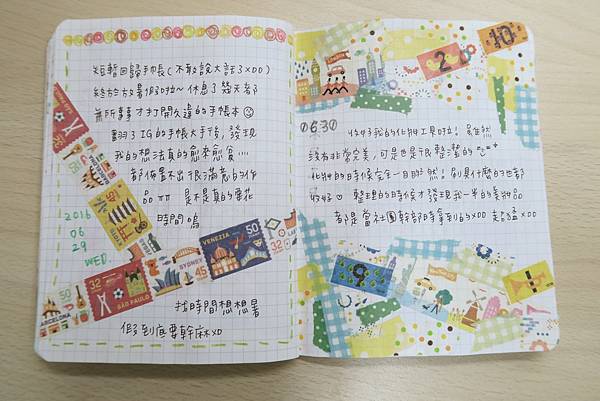 短暫回歸手帳(不敢說大話了XDD)
終於放暑假啦~ 休息了幾天都
無所事事才打開久違的手帳本
翻了IG的手帳大手後,發現
我的想法真的愈來愈侷....
都佈置不出很滿意的作
品 是不是真的需花
時間嗎
2016
06
29
WED.
找時間想想暑
假到底要幹麻XD
BARCELONA
32
SAO PAULO
VENEZIA
50
SYDNEY
45
32
50
2
10
06:30
收好我的化妝工具啦! 雖然
沒有非常完美,可是也是很整潔的
化妝的時候完全一目瞭然!
收好♡ 整理的時候才發現我一半的美妝品
都是當社團幹部時拿到的XDD
9